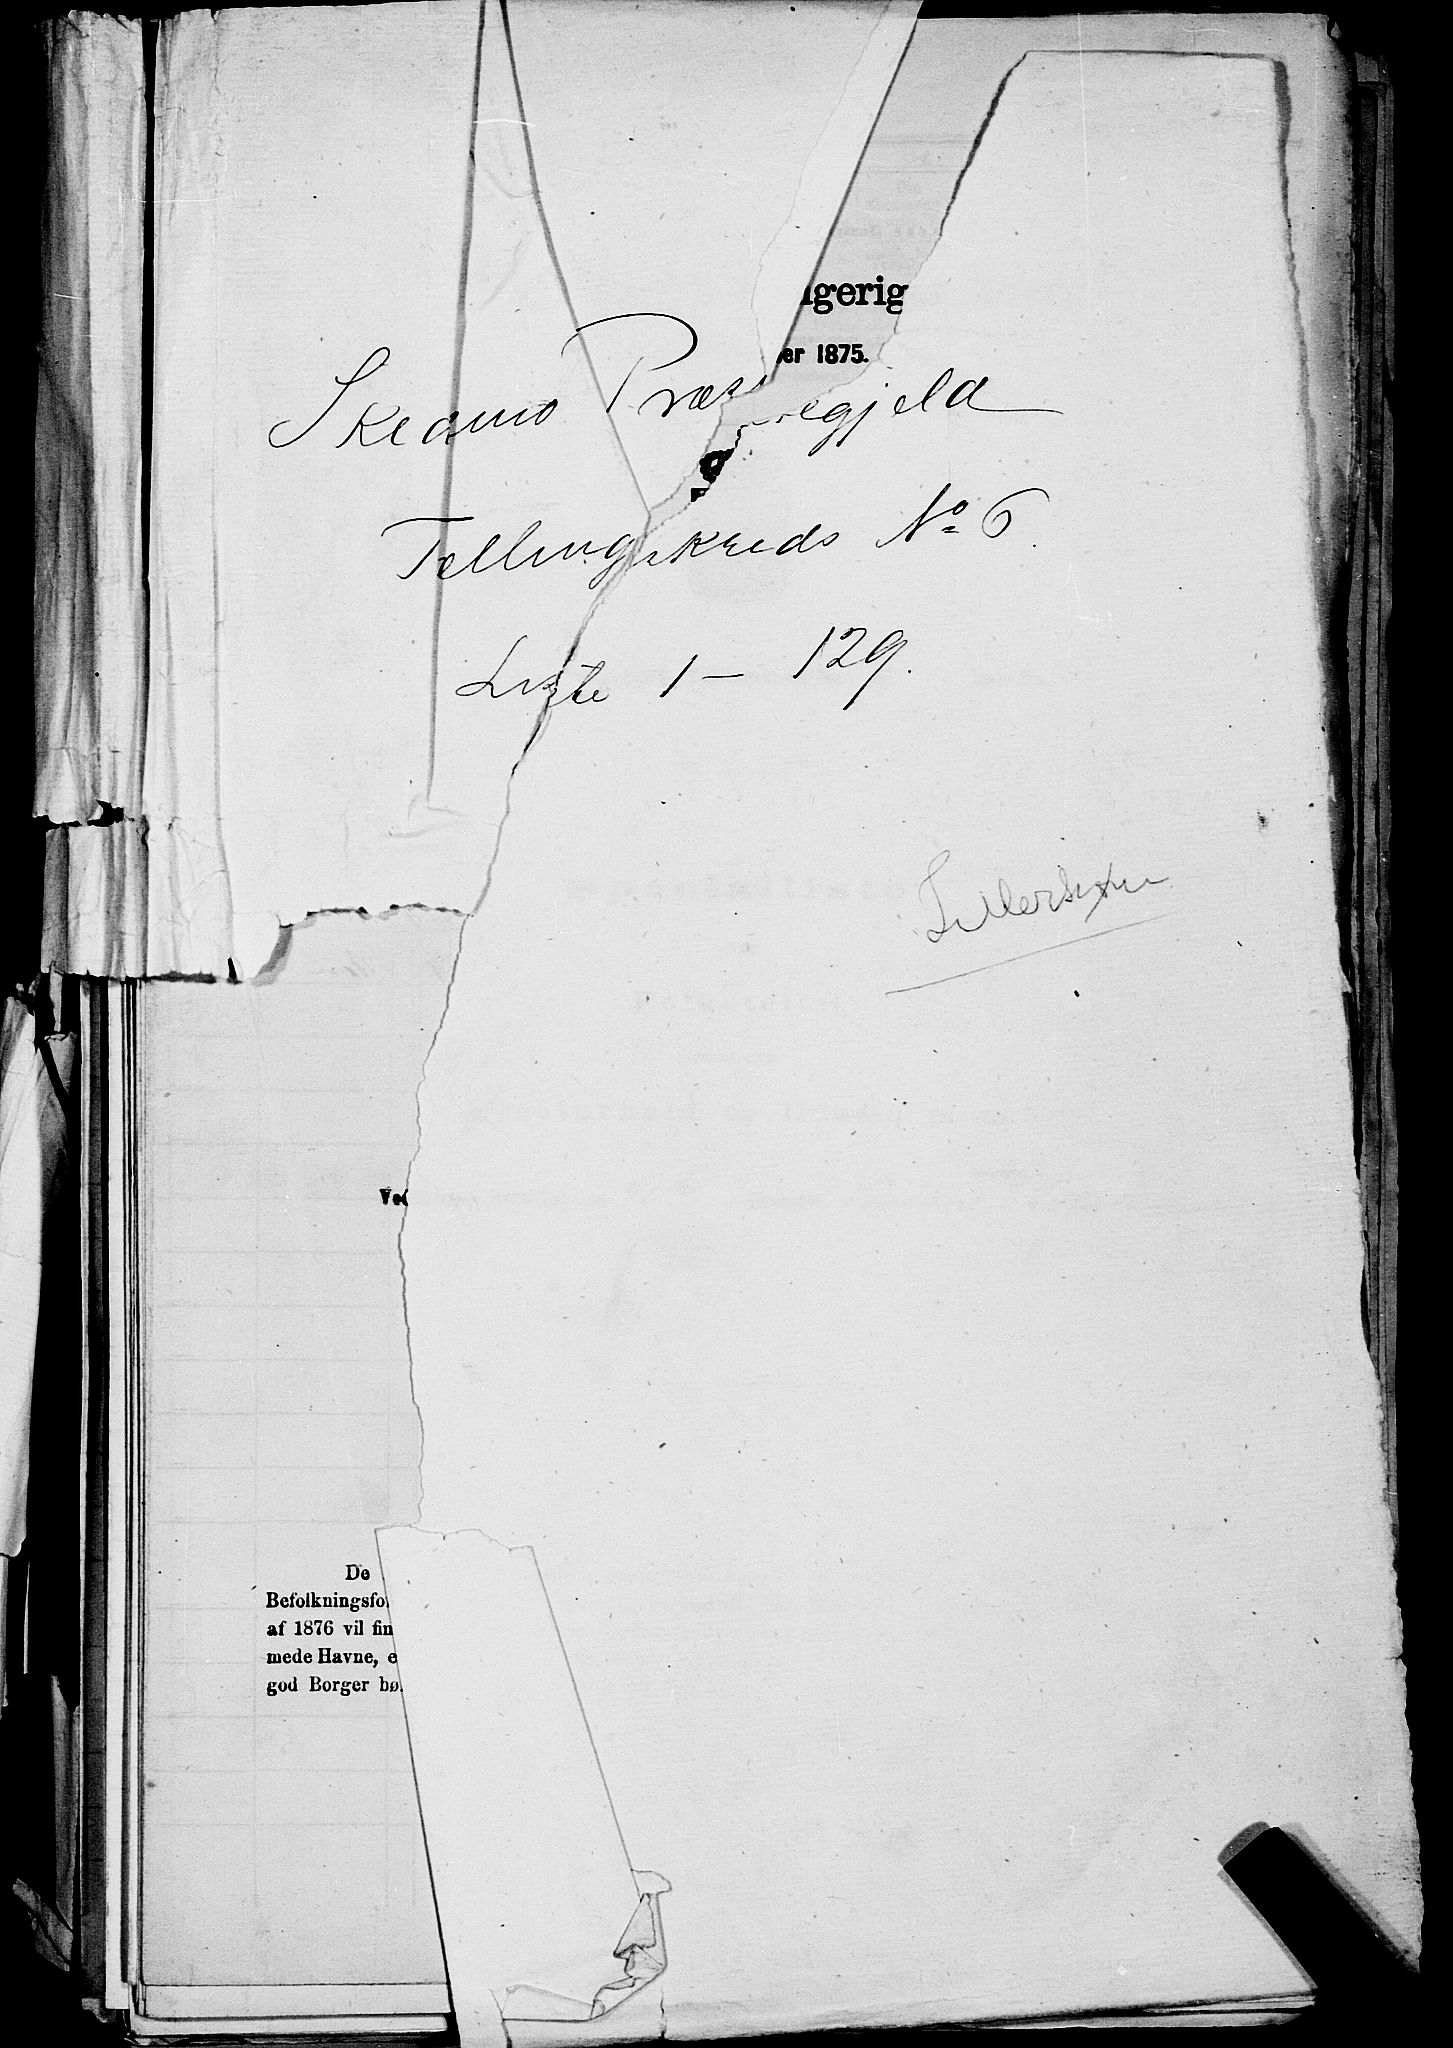 ngerig
er 1875.
Skedsmo Præstegjeld
Tellingskreds No 6.
Liste 1 – 129.
Lillestrøm
Ved
De
Befolkningsfo
af 1876 vil fin
mede Havne, e
god Borger bø